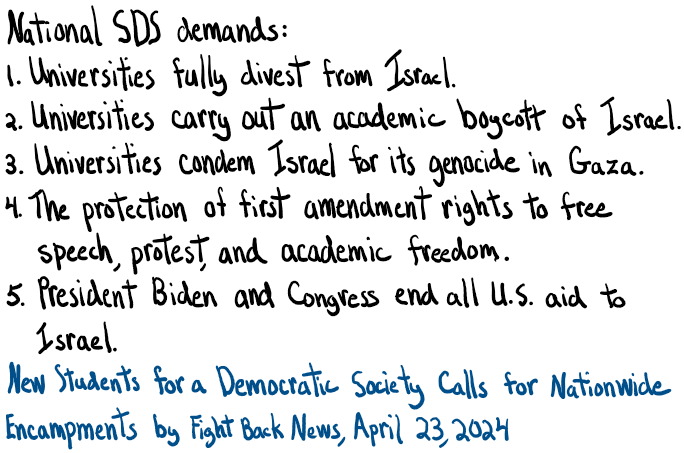 National SDS demands:
1. Universities fully divest from Israel.
2. Universities carry out an academic boycott of Israel.
3. Universities condem Israel for its genocide in Gaza.
4. The protection of first amendment rights to free
speech, protest, and academic freedom.
5. President Biden and Congress end all U.S. aid to
Israel.
New Students for a Democratic Society Calls for Nationwide
Encampments by Fight Back News, April 23, 2024